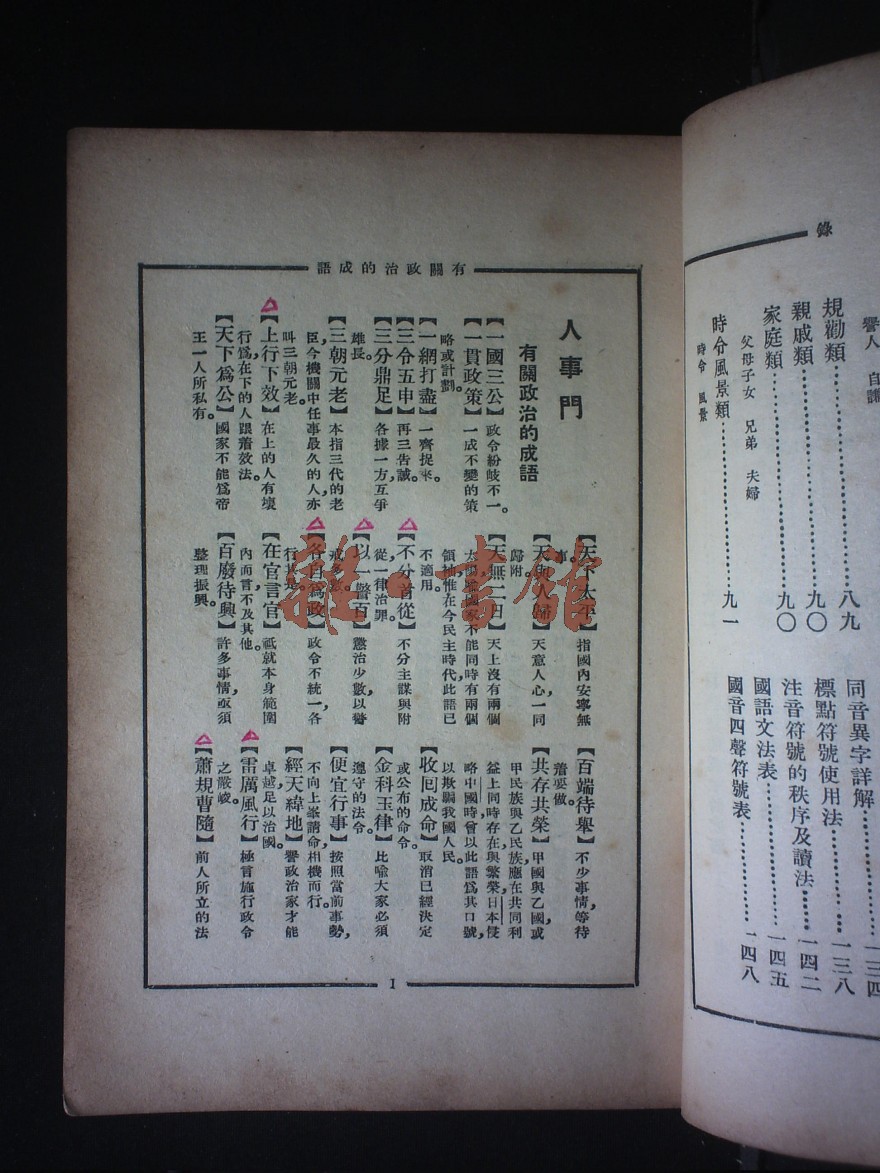 錄
譽人 自謙
規勸類……………八九
親戚類……………九〇
家庭類……………九〇
父母子女 兄弟 夫婦
時令風景類……………九一
時令 風景
同音異字詳解……………一三四
標點符號使用法……………一三八
注音符號的秩序及讀法……一四二
國語文法表……………一四五
國音四聲符號表……………一四八
有關政治的成語
人事門
有關政治的成語
【一國三公】政令紛歧不一。
【一貫政策】一成不變的策
略或計劃。
【一網打盡】一齊捉來。
【三令五申】再三告誡。
【三分鼎足】各據一方,互爭
雄長。
【三朝元老】本指三代的老
臣,今機關中任事最久的人,亦
叫三朝元老。
【上行下效】在上的人有壞
行為,在下的人跟着效法。
【天下為公】國家不能為帝
王一人所私有。
【天下太平】指國內安寧無
事。
【天與人歸】天意人心,一同
歸附。
【天無二日】天上沒有兩個
太陽,喻國家不能同時有兩個
領袖,惟在今民主時代,此語已
不適用。
【不分首從】不分主謀與附
從,一律治罪。
【以一警百】懲治少數,以警
戒多數。
【各自為政】政令不統一,各
行其是。
【在官言官】祇就本身範圍
內而言,不及其他。
【百廢待興】許多事情,亟須
整理振興。
【百端待舉】不少事情,等待
着要做。
【共存共榮】甲國與乙國,或
甲民族與乙民族,應在共同利
益上,同時存在與繁榮,日本侵
略中國時,曾以此語為其口號,
以欺騙我國人民。
【收回成命】取消已經決定
或公布的命令。
【金科玉律】比喻大家必須
遵守的法令。
【便宜行事】按照當前事勢,
不向上峯請命,相機而行。
【經天緯地】譽政治家才能
卓越,足以治國。
【雷厲風行】極言施行政令
之嚴峻。
【蕭規曹隨】前人所立的法
1
雜·書館